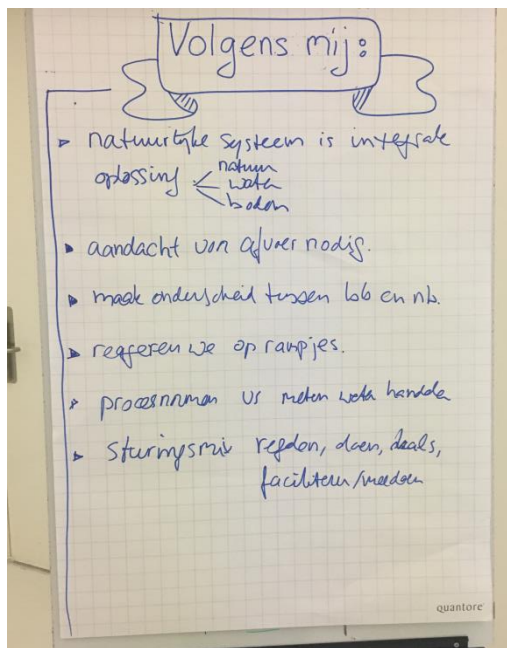 Volgens mij:
natuurlijke systeem is integrale
oplossing
natuur
water
bodem
aandacht voor afvoer nodig.
maak onderscheid tussen bb en nb.
reageren we op rampjes.
procesnormen vs meten weten handelen
sturingsmix regelen, doen, deals,
faciliteren/meedoen
quantore